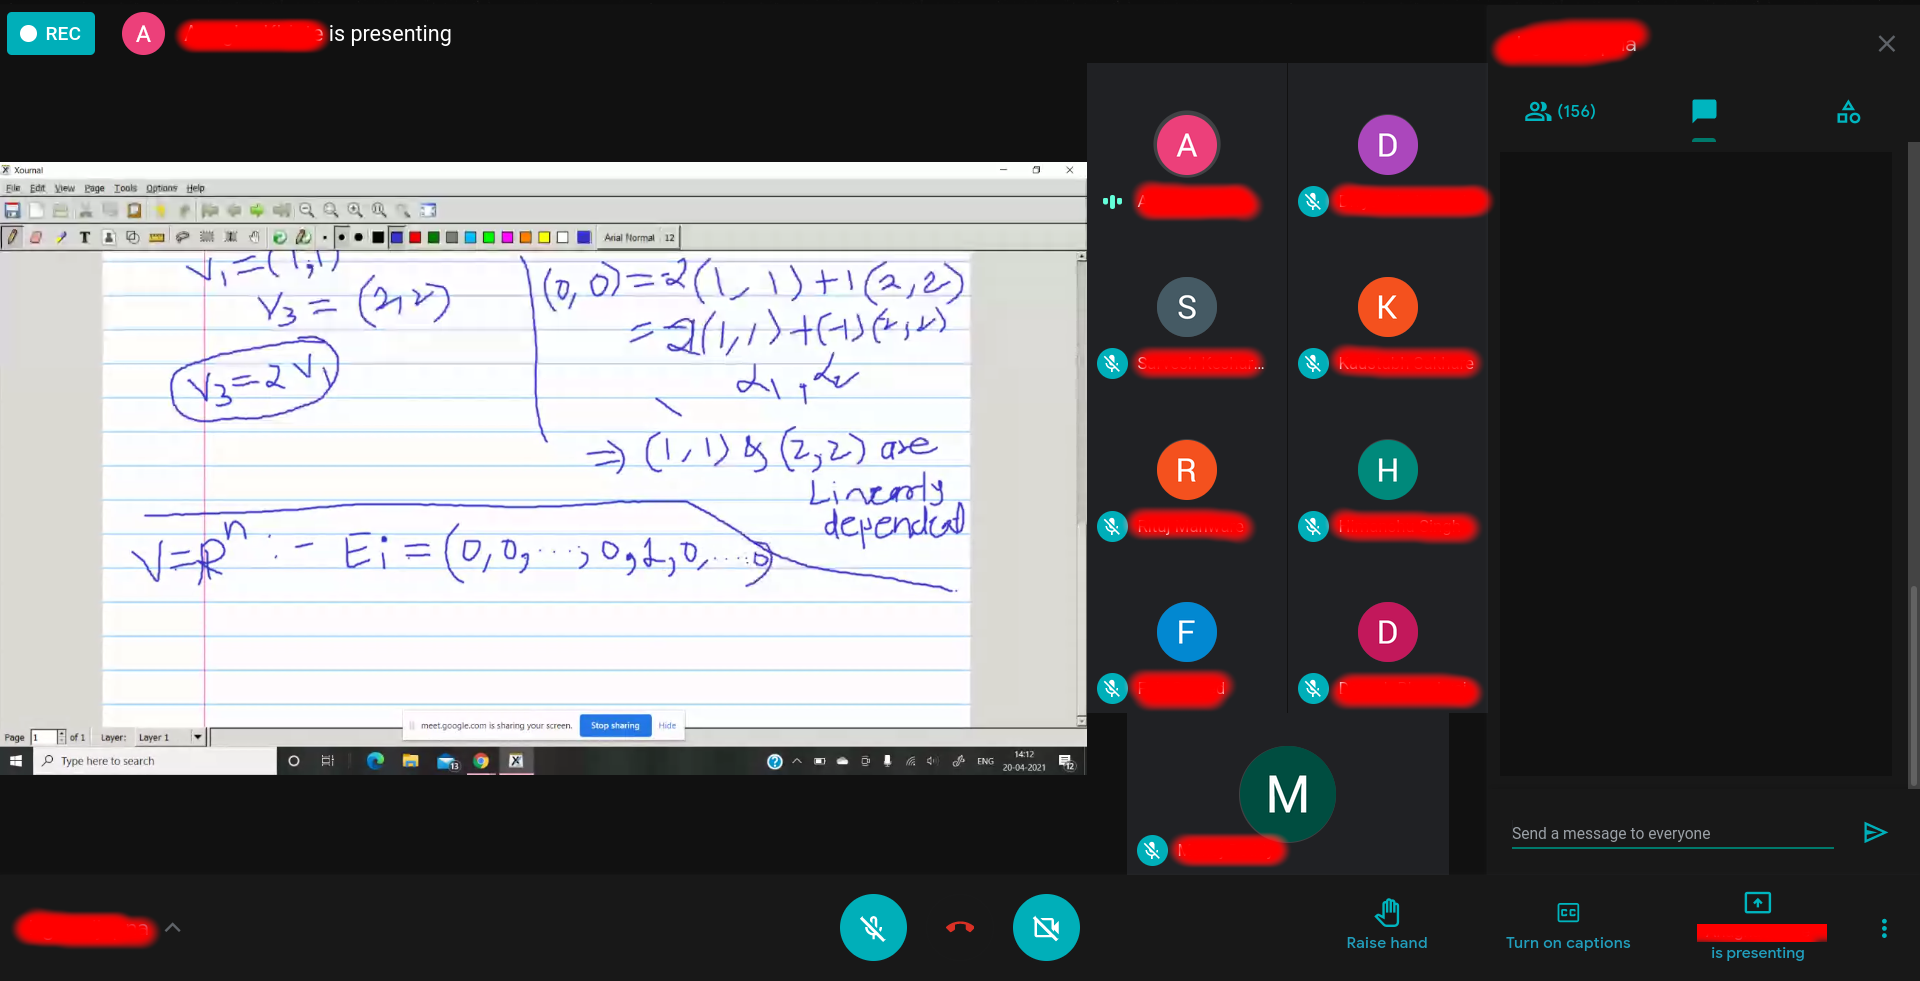 REC
A
is presenting
(156)
Xournal
File Edit View Page Tools Options Help
Arial Normal 12
V₁=(1,1)
V₃ = (2,2)
V₃=2V₁
(0,0)=-2(1,1)+1(2,2)
=2(1,1)+(-1)(2,2)
α₁,α₂
⇒ (1,1) & (2,2) are
Linearly
dependent
V=Rⁿ :- Ei = (0,0,...,0,1,0,...0)
meet.google.com is sharing your screen. Stop sharing Hide
Page 1 of 1 Layer: Layer 1
Type here to search
13
ENG
14:12
20-04-2021
12
A
D
S
K
R
H
F
D
M
Send a message to everyone
Raise hand
CC
Turn on captions
is presenting